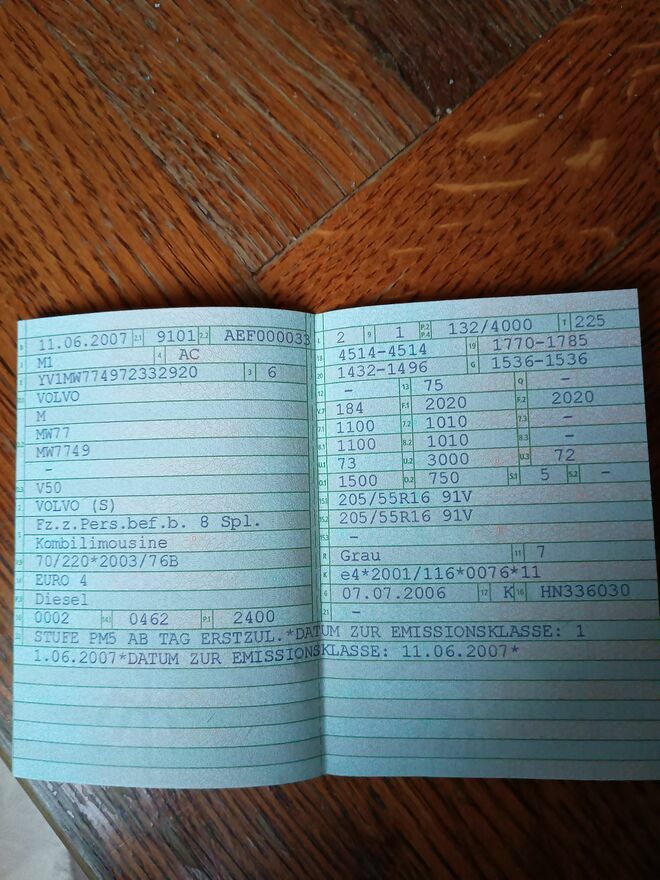 B 11.06.2007 2.1 9101 2.2 AEF000033
J M1 4 AC
E YV1MW774972332920 3 6
D.1 VOLVO
M
D.2 MW77
MW7749
-
D.3 V50
2 VOLVO (S)
5 Fz.z.Pers.bef.b. 8 Spl.
Kombilimousine
V.9 70/220*2003/76B
14 EURO 4
P.3 Diesel
10 0002 14.1 0462 P.1 2400
22 STUFE PM5 AB TAG ERSTZUL.*DATUM ZUR EMISSIONSKLASSE: 1
1.06.2007*DATUM ZUR EMISSIONSKLASSE: 11.06.2007*
L 2 9 1 P.2 P.4 132/4000 T 225
18 4514-4514 19 1770-1785
20 1432-1496 G 1536-1536
12 - 13 75 Q -
V.7 184 F.1 2020 F.2 2020
7.1 1100 7.2 1010 7.3 -
8.1 1100 8.2 1010 8.3 -
U.1 73 U.2 3000 U.3 72
O.1 1500 O.2 750 S.1 5 S.2 -
15.1 205/55R16 91V
15.2 205/55R16 91V
15.3 -
R Grau 11 7
K e4*2001/116*0076*11
6 07.07.2006 17 K 16 HN336030
21 -